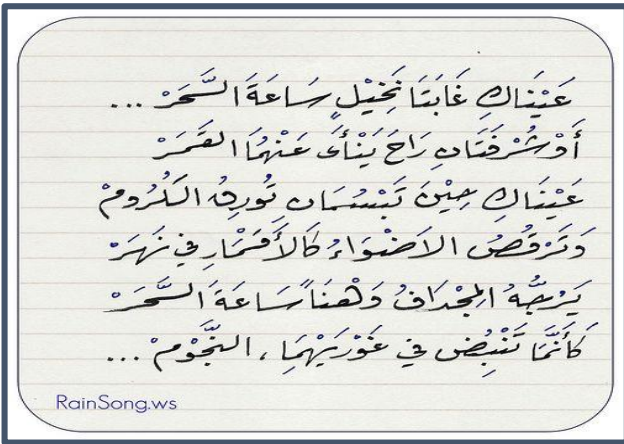 عَيْنَاكِ غَابَتَا نَخِيْلٍ سَاعَةَ السَّحَرْ ...
أَوْ شُرْفَتَانِ رَاحَ يَنْأَى عَنْهُمَا القَمَرْ
عَيْنَاكِ حِيْنَ تَبْسُمَانِ تُورِقُ الكُرُومْ
وَتَرْقُصُ الاَضْوَاءُ كَالأَقْمَارِ في نَهَرْ
يَرُجُّهُ المِجْدَافُ وَهْنَاً سَاعَةَ السَّحَرْ
كَأَنَّمَا تَنْبُضُ في غَوْرَيْهِمَا ، النُّجُوْمْ ...
RainSong.ws